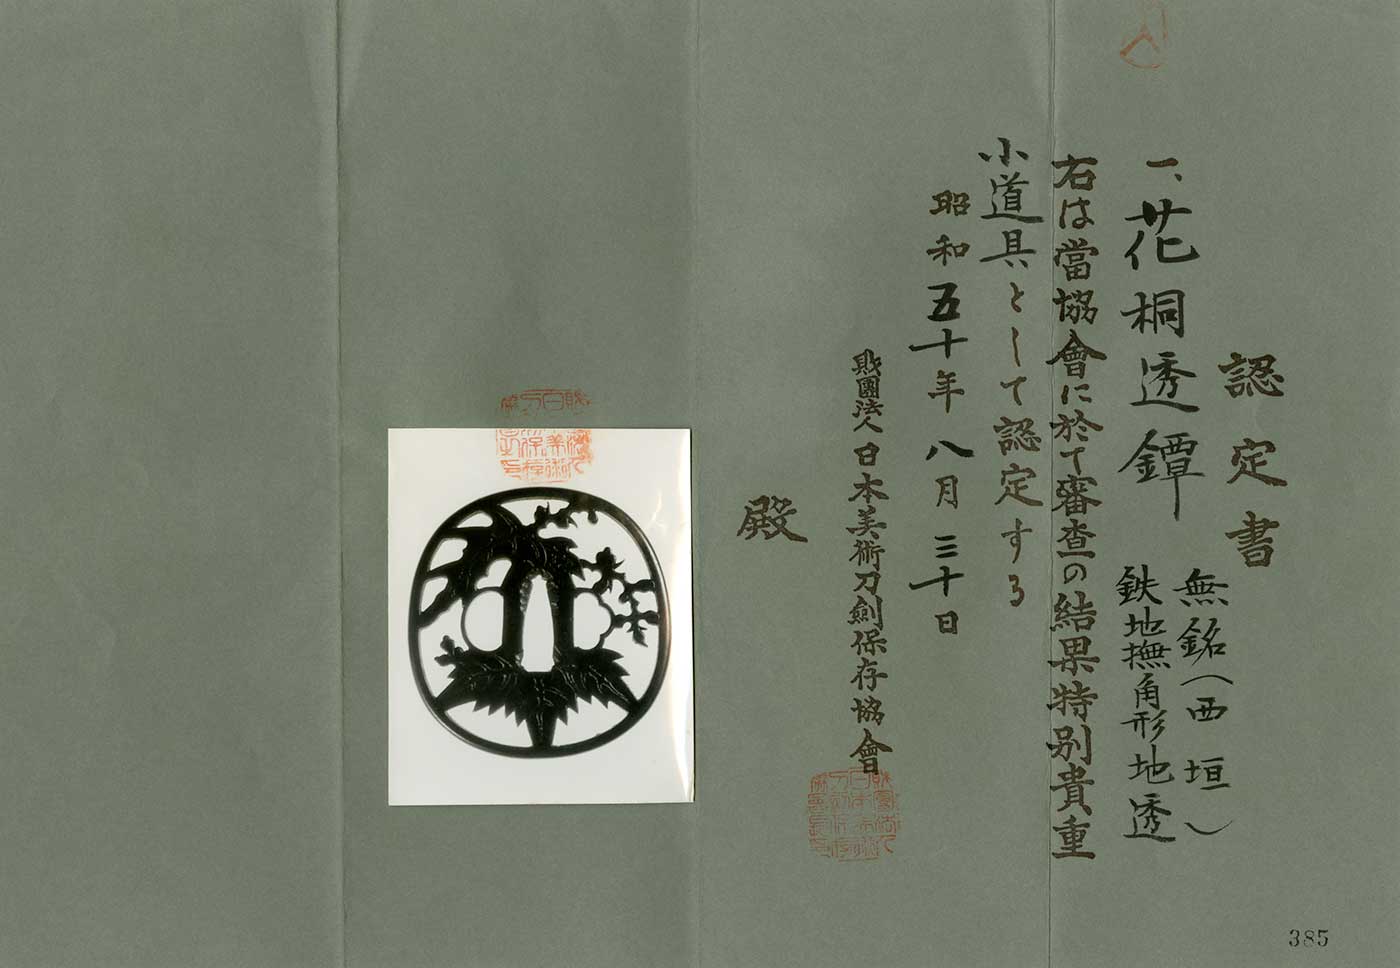 認定書
一、花桐透鐔
無銘(西垣)
鉄地撫角形地透
右は當協會に於て審査の結果特別貴重
小道具として認定する
昭和五十年八月三十日
財團法人日本美術刀劍保存協會
殿
385